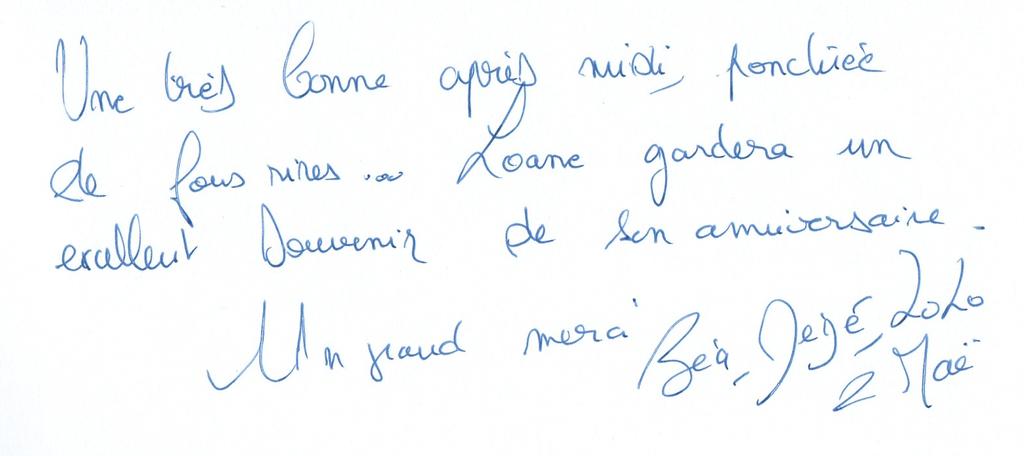 Une très bonne après midi, ponctuée
de fous rires... Loane gardera un
excellent souvenir de son anniversaire.
Un grand merci Béa, Dejé, LoLo
& Maë